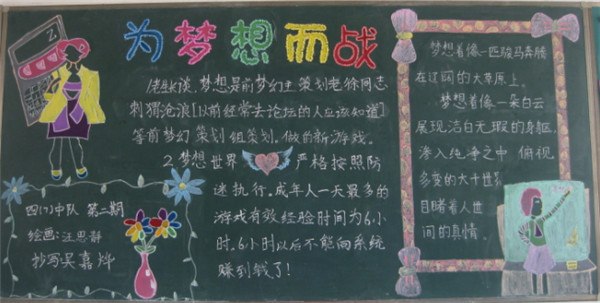 为梦想而战
佬牛谈,梦想是前梦幻主策划老徐同志,
刺猬沧浪[以前经常去论坛的人应该知道]
等前梦幻策划组策划,做的新游戏。
2.梦想世界 严格按照防
迷执行,成年人一天最多的
游戏有效经验时间为6小
时,6小时以后不能向系统
赚到钱了!
梦想着像一匹骏马奔腾
在辽阔的大草原上。
梦想着像一朵白云
展现洁白无瑕的身躯,
渗入纯净之中 俯视
多变的大千世界
目睹着人世
间的真情
四(7)中队 第二期
绘画:汪思静
抄写吴嘉烨